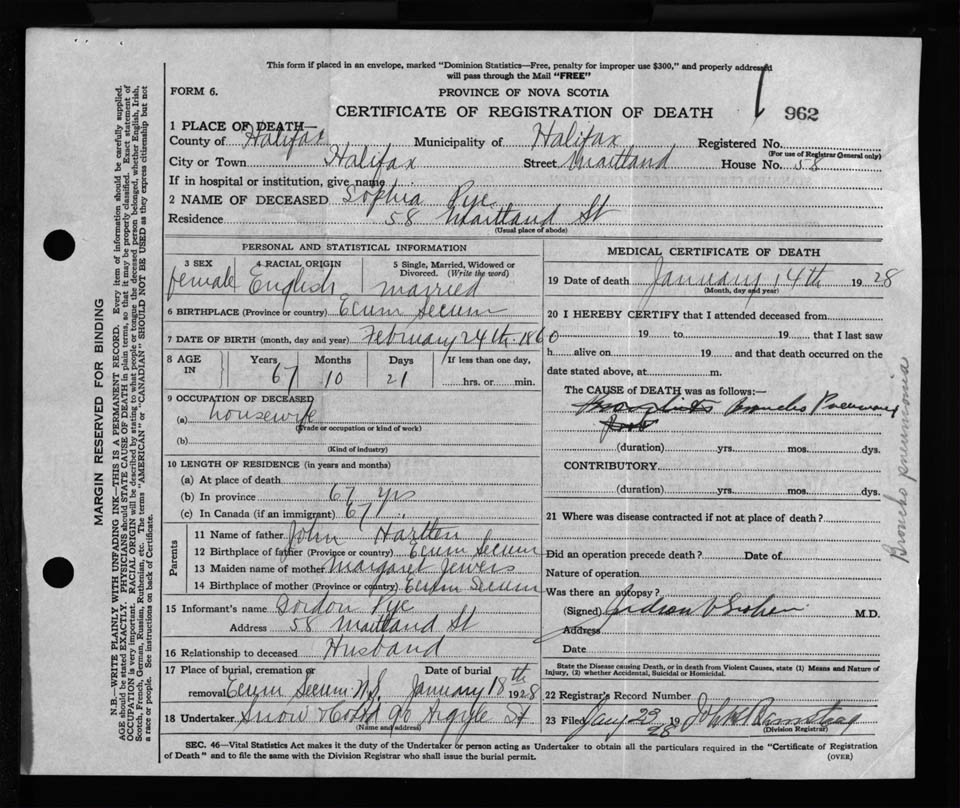 This form if placed in an envelope, marked "Dominion Statistics—Free, penalty for improper use $300," and properly addressed
will pass through the Mail "FREE"
FORM 6.
PROVINCE OF NOVA SCOTIA
CERTIFICATE OF REGISTRATION OF DEATH
962
1 PLACE OF DEATH—
County of Halifax Municipality of Halifax Registered No.
(For use of Registrar General only)
City or Town Halifax Street Maitland House No. 58
If in hospital or institution, give name
2 NAME OF DECEASED Sophia Pye
Residence 58 Maitland St
(Usual place of abode)
PERSONAL AND STATISTICAL INFORMATION
3 SEX 4 RACIAL ORIGIN 5 Single, Married, Widowed or Divorced. (Write the word)
female English married
6 BIRTHPLACE (Province or country) Ecum Secum
7 DATE OF BIRTH (month, day and year) February 24th 1860
8 AGE IN Years Months Days If less than one day,
67 10 21 hrs. or min.
9 OCCUPATION OF DECEASED
(a) housewife
(Trade or occupation or kind of work)
(b)
(Kind of industry)
10 LENGTH OF RESIDENCE (in years and months)
(a) At place of death
(b) In province 67 yrs
(c) In Canada (if an immigrant) 67
Parents
11 Name of father John Hartten
12 Birthplace of father (Province or country) Ecum Secum
13 Maiden name of mother Margaret Jewers
14 Birthplace of mother (Province or country) Ecum Secum
15 Informant's name Gordon Pye
Address 58 Maitland St
16 Relationship to deceased Husband
17 Place of burial, cremation or Date of burial
removal Ecum Secum N.S. January 18th 1928
18 Undertaker Snow & Co Ltd 90 Argyle St
(Name and address)
MEDICAL CERTIFICATE OF DEATH
19 Date of death January 14th 1928
(Month, day and year)
20 I HEREBY CERTIFY that I attended deceased from
19 to 19 that I last saw
h alive on 19 and that death occurred on the
date stated above, at m.
The CAUSE of DEATH was as follows:—
Broncho Pneumonia
(duration) yrs. mos. dys.
CONTRIBUTORY
(duration) yrs. mos. dys.
21 Where was disease contracted if not at place of death?
Did an operation precede death? Date of
Nature of operation
Was there an autopsy?
(Signed) M.D.
Address
Date
State the Disease causing Death, or in death from Violent Causes, state (1) Means and Nature of
Injury, (2) whether Accidental, Suicidal or Homicidal.
22 Registrar's Record Number
23 Filed Jany 23 1928 John
(Division Registrar)
Broncho pneumonia
SEC. 46—Vital Statistics Act makes it the duty of the Undertaker or person acting as Undertaker to obtain all the particulars required in the "Certificate of Registration
of Death" and to file the same with the Division Registrar who shall issue the burial permit.
(OVER)
MARGIN RESERVED FOR BINDING
N.B.—WRITE PLAINLY WITH UNFADING INK—THIS IS A PERMANENT RECORD. Every item of information should be carefully supplied.
AGE should be stated EXACTLY. PHYSICIANS should STATE CAUSE OF DEATH in plain terms, so that it may be properly classified. Exact statement of
OCCUPATION is very important. RACIAL ORIGIN will be described by stating to what people or tongue the deceased person belonged, whether English, Irish,
Scotch, French, German, Russian, Ruthenian, etc. The terms "AMERICAN" or "CANADIAN" SHOULD NOT BE USED as they express citizenship but not
a race or people. See instructions on back of Certificate.